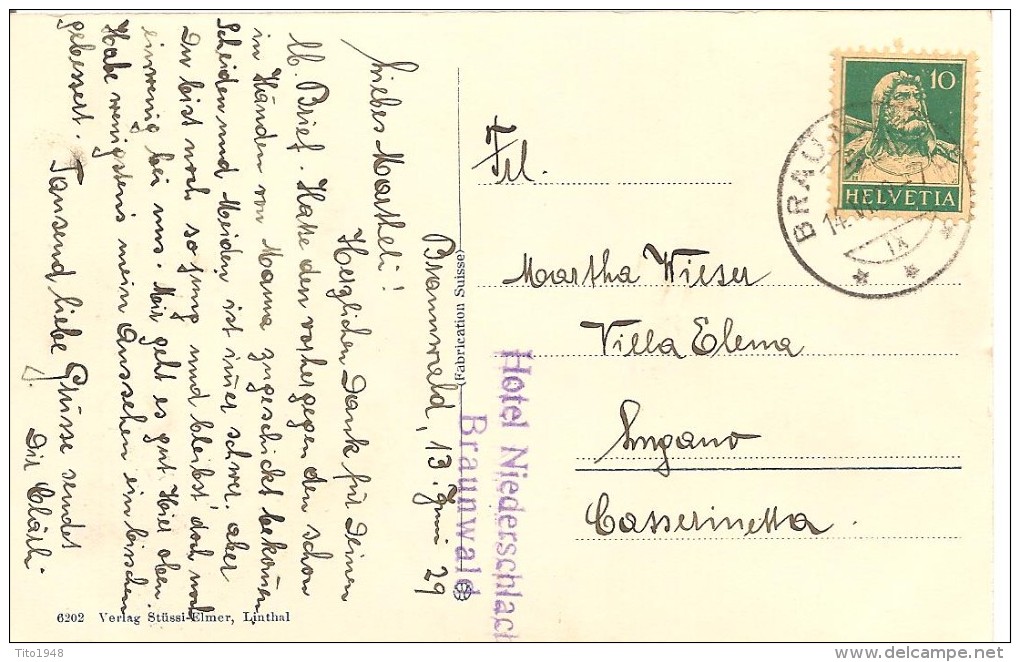 Braunwald, 13. Juni 29
Liebes Martheli!
Herzlichen Dank für Deinen
lb. Brief. Hatte den vorhergegen den schon
in Händen von Mamma zugeschickt bekom̄en
Scheiden und Meiden, ist im̄er schwer. aber
Du bist noch so jung und bleibst doch noch
einwenig bei uns. Mir geht es gut. Hier oben.
Habe wenigstens mein Aussehen ein bisschen
gebessert. Tausend liebe Grüsse sendet
Dir Clärli.
(Fabrication Suisse)
Hotel Niederschlacht
Braunwald
6202 Verlag Stüssi-Elmer, Linthal
10
HELVETIA
BRAUNWALD
14.VI.29
IX
Frl.
Martha Wieser
Villa Elema
Lugano
Casserinetta.
Tito1948
delcampe.net